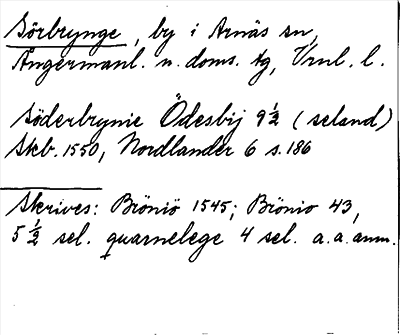 Sörbrynge, by i Arnäs sn,
Ångermanl. n. doms. tg, Vrnl. l.
Söderbrynie Ödesbij 9½ (seland)
Skb. 1550, Nordlander 6 s. 186
Skrives: Bröniö 1545; Brönio 43,
5½ sel. quarnelege 4 sel. a. a. anm.